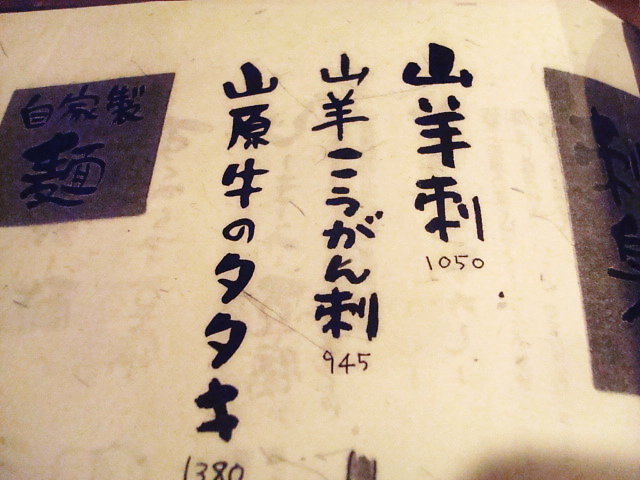 山羊刺
1050
山羊こうがん刺
945
山原牛のタタキ
1380
自家製
麺
刺身